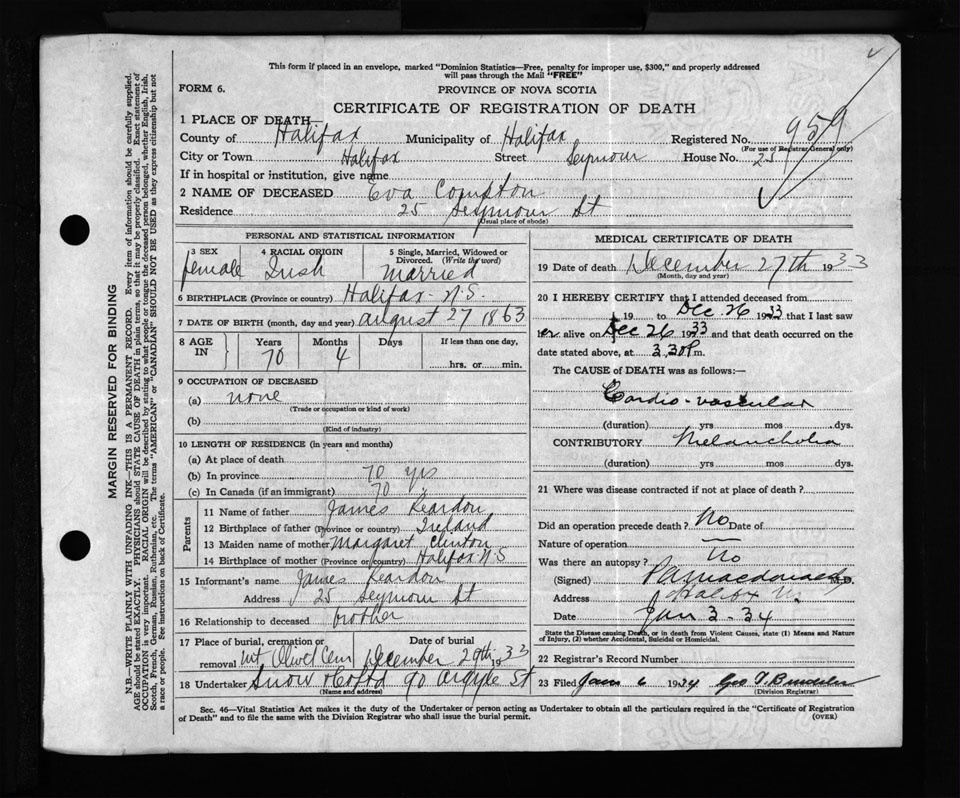 This form if placed in an envelope, marked "Dominion Statistics—Free, penalty for improper use, $300," and properly addressed
will pass through the Mail "FREE"
FORM 6.
PROVINCE OF NOVA SCOTIA
CERTIFICATE OF REGISTRATION OF DEATH
1 PLACE OF DEATH
County of Halifax Municipality of Halifax Registered No. 959
(For use of Registrar General only)
City or Town Halifax Street Seymour House No. 25
If in hospital or institution, give name
2 NAME OF DECEASED Eva Compton
Residence 25 Seymour St
(Usual place of abode)
MARGIN RESERVED FOR BINDING
N.B.—WRITE PLAINLY WITH UNFADING INK—THIS IS A PERMANENT RECORD. Every item of information should be carefully supplied.
AGE should be stated EXACTLY. PHYSICIANS should STATE CAUSE OF DEATH in plain terms, so that it may be properly classified. Exact statement of
OCCUPATION is very important. RACIAL ORIGIN will be described by stating to what people or tongue the deceased person belonged, whether English, Irish,
Scotch, French, German, Russian, Ruthenian, etc. The terms "AMERICAN" or "CANADIAN" SHOULD NOT BE USED as they express citizenship but not
a race or people. See instructions on back of Certificate.
PERSONAL AND STATISTICAL INFORMATION
3 SEX 4 RACIAL ORIGIN 5 Single, Married, Widowed or
Divorced. (Write the word)
female Irish Married
6 BIRTHPLACE (Province or country) Halifax - N.S.
7 DATE OF BIRTH (month, day and year) August 27 1863
8 AGE IN Years Months Days If less than one day,
70 4 hrs. or min.
9 OCCUPATION OF DECEASED
(a) none
(Trade or occupation or kind of work)
(b)
(Kind of industry)
10 LENGTH OF RESIDENCE (in years and months)
(a) At place of death
(b) In province 70 yrs
(c) In Canada (if an immigrant) 70
Parents
11 Name of father James Reardon
12 Birthplace of father (Province or country) Ireland
13 Maiden name of mother Margaret Clinton
14 Birthplace of mother (Province or country) Halifax N.S
15 Informant's name James Reardon
Address 25 Seymour St
16 Relationship to deceased brother
17 Place of burial, cremation or Date of burial
removal Mt Olivet Cem December 29th 1933
18 Undertaker Snow & Co Ltd 90 Argyle St
(Name and address)
MEDICAL CERTIFICATE OF DEATH
19 Date of death December 27th 1933
(Month, day and year)
20 I HEREBY CERTIFY that I attended deceased from
19 to Dec 26 1933 that I last saw
er alive on Dec 26 1933 and that death occurred on
date stated above, at 3.30 P m.
The CAUSE of DEATH was as follows:—
Cardio-vascular
(duration) yrs mos dys.
CONTRIBUTORY Melancholia
(duration) yrs mos dys.
21 Where was disease contracted if not at place of death?
Did an operation precede death? No Date of
Nature of operation
Was there an autopsy? No
(Signed) Macdonald M.D.
Address Halifax
Date Jan 3 - 34
State the Disease causing Death, or in death from Violent Causes, state (1) Means and Nature of
Injury, (2) whether Accidental, Suicidal or Homicidal.
22 Registrar's Record Number
23 Filed Jan 6 1934 Geo
(Division Registrar)
Sec. 46—Vital Statistics Act makes it the duty of the Undertaker or person acting as Undertaker to obtain all the particulars required in the "Certificate of Registration
of Death" and to file the same with the Division Registrar who shall issue the burial permit. (OVER)